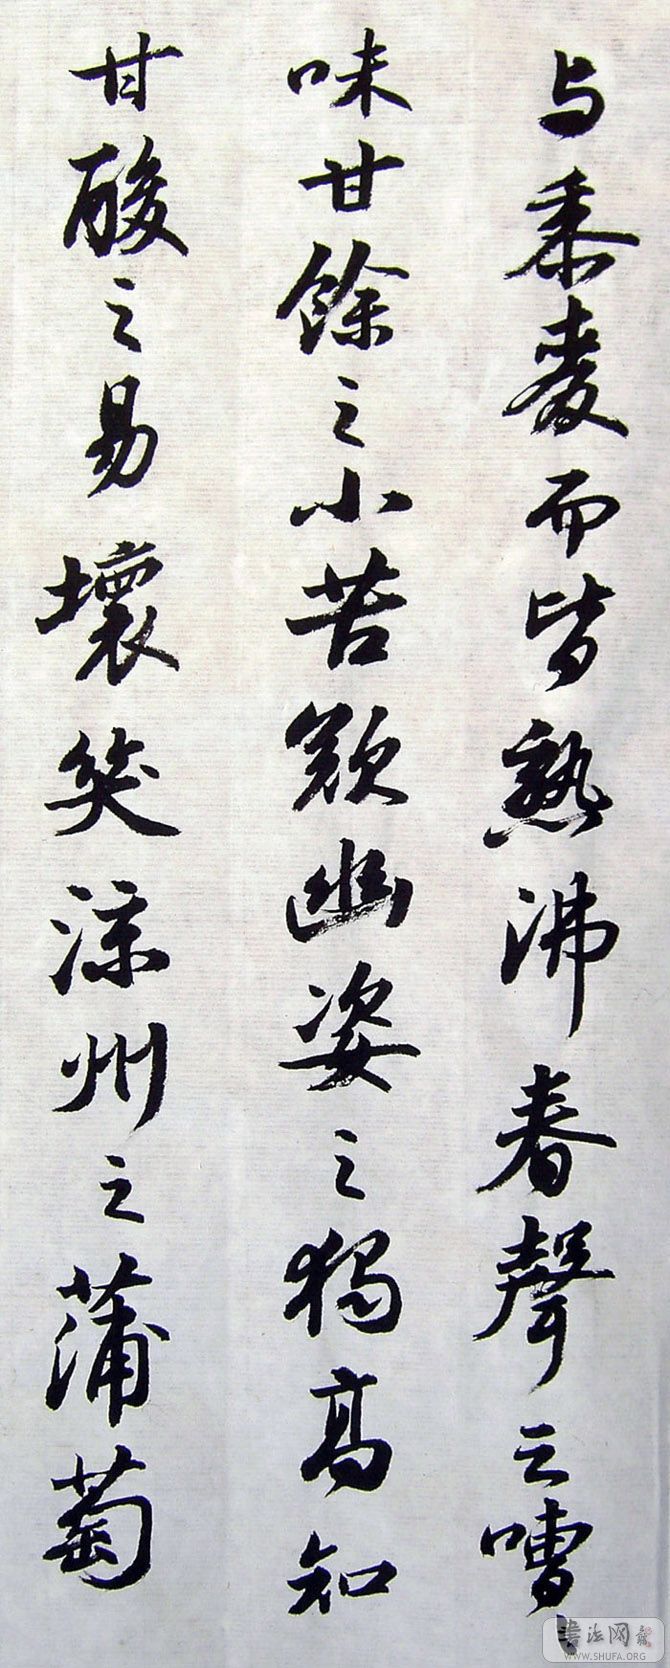 与黍麦而皆熟沸舂聲之嘈〻
味甘餘之小苦歎幽姿之獨高知
甘酸之易壞笑涼州之蒲萄
書法网
WWW.SHUFA.ORG